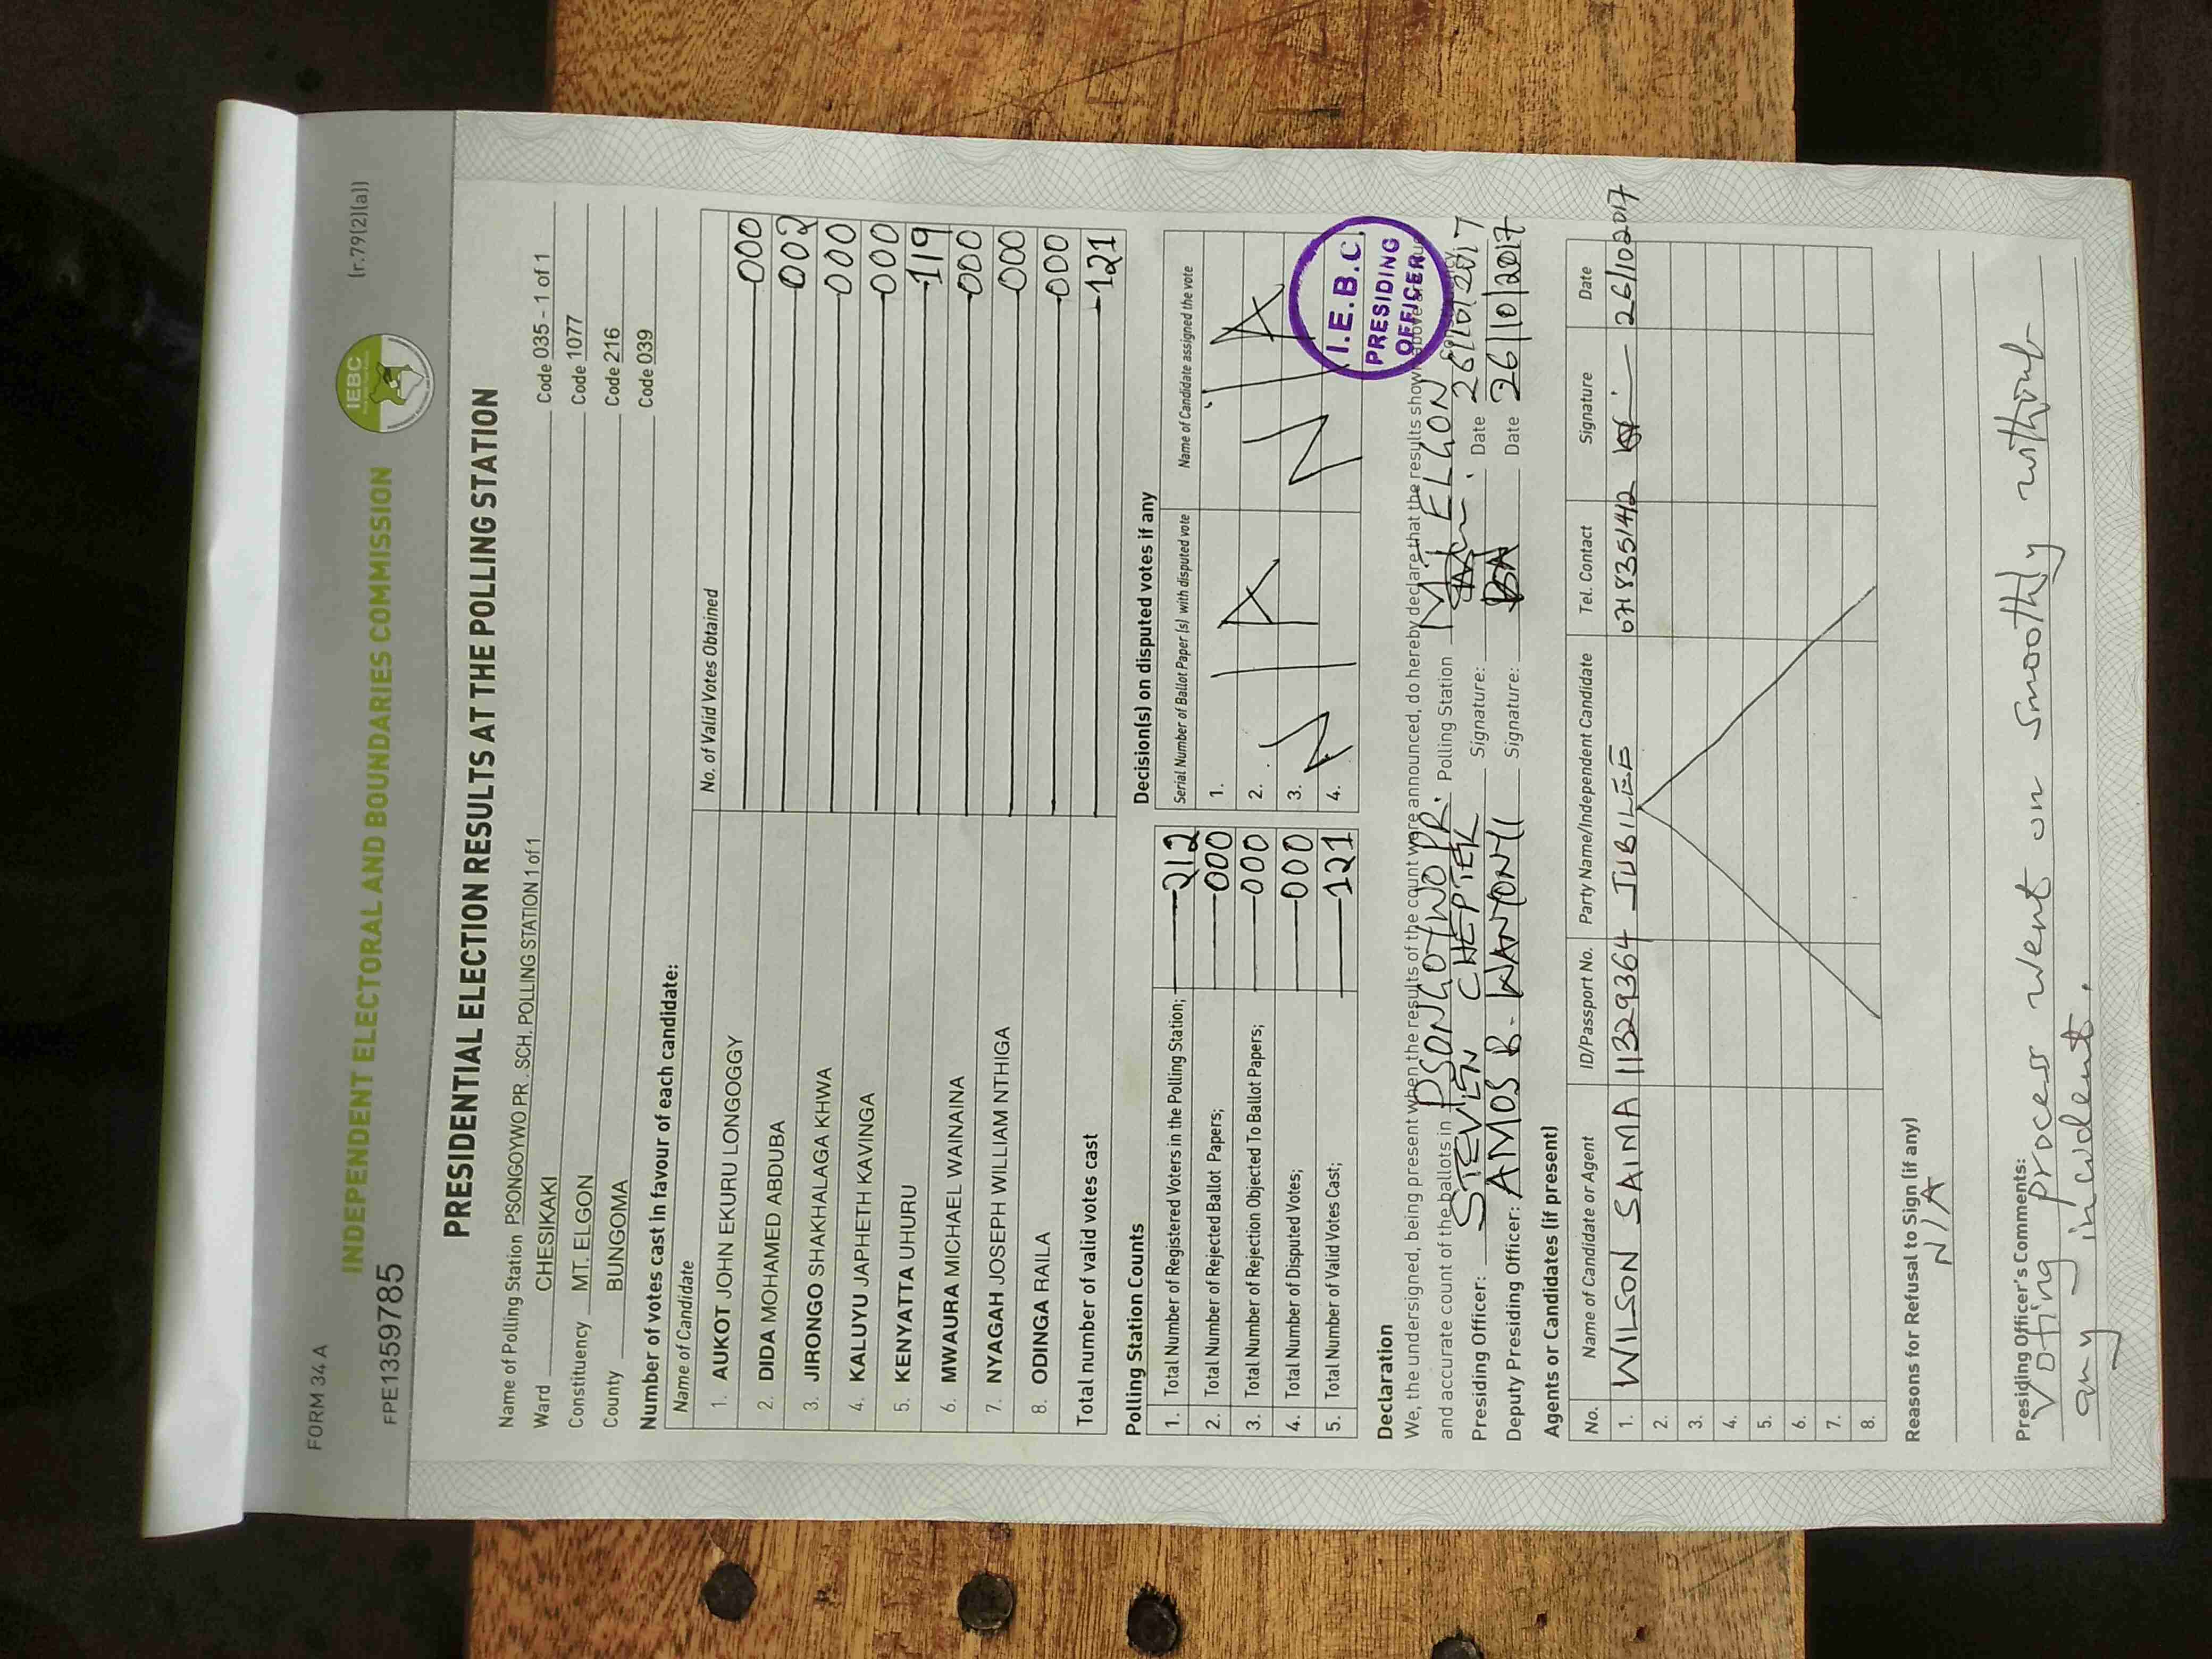 FORM 34 A
(r.79(2)(a))
INDEPENDENT ELECTORAL AND BOUNDARIES COMMISSION
IEBC
FPE1359785
PRESIDENTIAL ELECTION RESULTS AT THE POLLING STATION
Name of Polling Station PSONGOYWO PR. SCH. POLLING STATION 1 of 1 Code 035 - 1 of 1
Ward CHESIKAKI Code 1077
Constituency MT. ELGON Code 216
County BUNGOMA Code 039
Number of votes cast in favour of each candidate:
Name of Candidate No. of Valid Votes Obtained
1. AUKOT JOHN EKURU LONGOGGY 000
2. DIDA MOHAMED ABDUBA 002
3. JIRONGO SHAKHALAGA KHWA 000
4. KALUYU JAPHETH KAVINGA 000
5. KENYATTA UHURU 119
6. MWAURA MICHAEL WAINAINA 000
7. NYAGAH JOSEPH WILLIAM NTHIGA 000
8. ODINGA RAILA 000
Total number of valid votes cast 121
Polling Station Counts
1. Total Number of Registered Voters in the Polling Station; 212
2. Total Number of Rejected Ballot Papers; 000
3. Total Number of Rejection Objected To Ballot Papers; 000
4. Total Number of Disputed Votes; 000
5. Total Number of Valid Votes Cast; 121
Decision(s) on disputed votes if any
Serial Number of Ballot Paper (s) with disputed vote Name of Candidate assigned the vote
1.
2.
3.
4.
N/A N/A
I.E.B.C.
PRESIDING
OFFICER
Declaration
We, the undersigned, being present when the results of the count were announced, do hereby declare that the results shown above
and accurate count of the ballots in PSONGOYWO PR. Polling Station Mt ELGON
Presiding Officer: STEVEN CHEPTEK Signature: Date 26/10/2017
Deputy Presiding Officer: AMOS B. WANYONYI Signature: Date 26/10/2017
Agents or Candidates (if present)
No. Name of Candidate or Agent ID/Passport No. Party Name/Independent Candidate Tel. Contact Signature Date
1. WILSON SAIMA 11329364 JUBILEE 0718351412 26/102017
2.
3.
4.
5.
6.
7.
8.
Reasons for Refusal to Sign (if any)
N/A
Presiding Officer's Comments:
Voting process went on smoothly without
any incident.